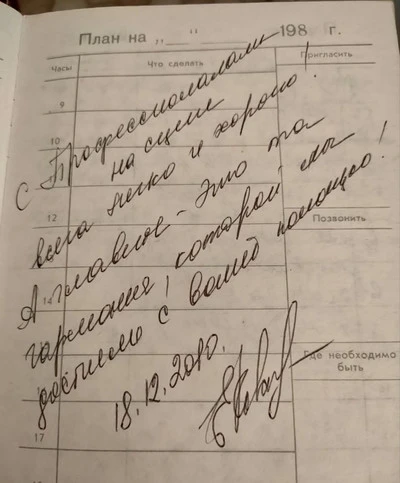 План на „ “ 198 г.
Часы Что сделать Пригласить
9
10
12
14
17
Позвонить
Где необходимо
быть
С Профессионалами
на сцене
всегда легко и хорошо!
А главное – это та
гармония, которой мы
достигли с Вашей помощью!
18.12.2010.